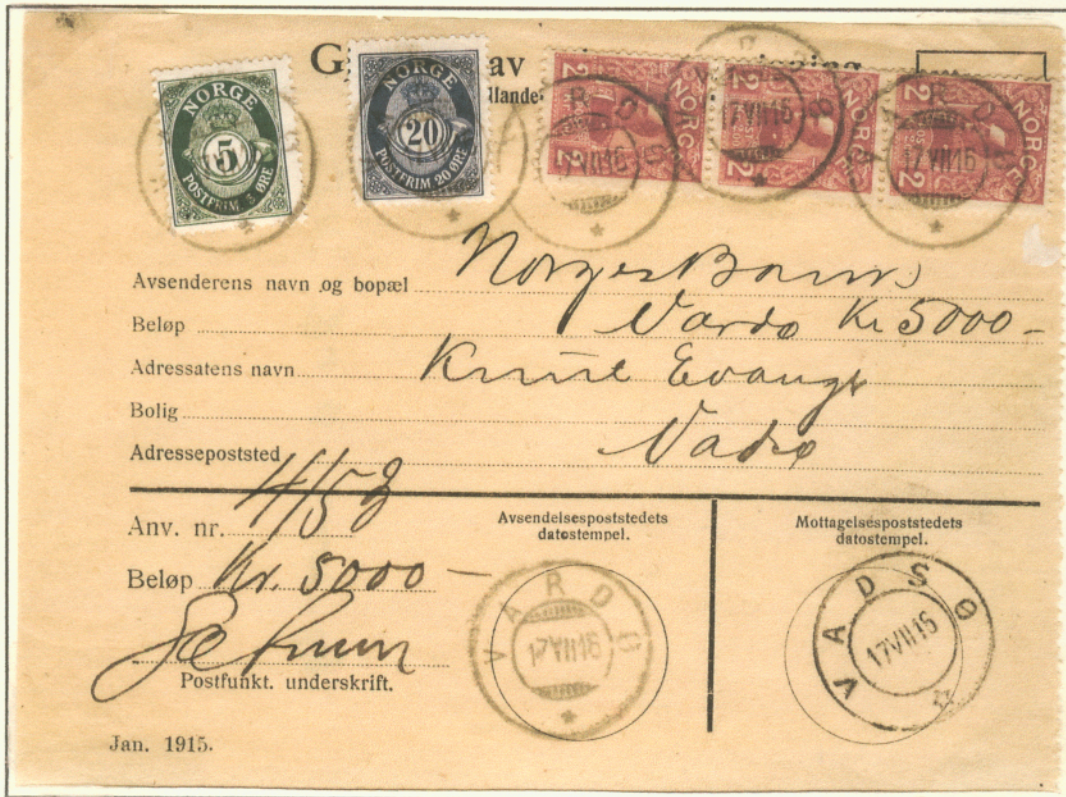 G av ning
llande
NORGE
5
POSTFRIM 5 ØRE
NORGE
20
POSTFRIM. 20 ØRE
2 NORGE 2
2 NORGE 2
2 NORGE 2
17 VII 16
17 VII 16
17 VII 16
Avsenderens navn og bopæl Norges Bank
Vardø Kr 5000-
Beløp
Adressatens navn Knut Evang
Bolig
Vadsø
Adressepoststed
Anv. nr.
Beløp Kr. 5000 —
Postfunkt. underskrift.
Avsendelsespoststedets
datostempel.
VARDØ
17 VII 16
Mottagelsespoststedets
datostempel.
VADSØ
17 VII 16
Jan. 1915.